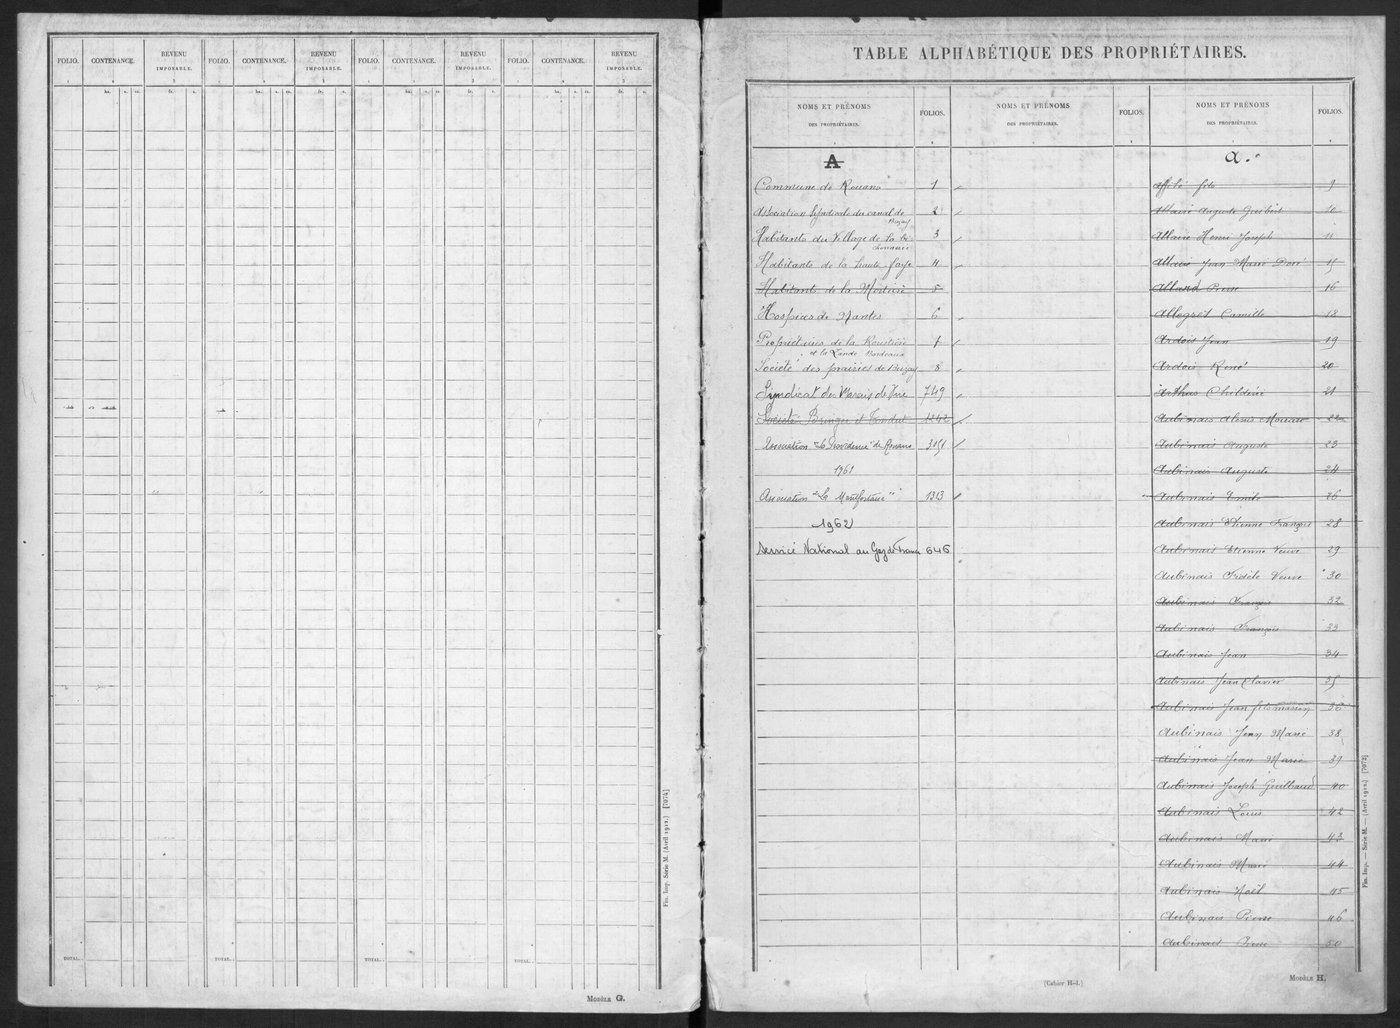 FOLIO. CONTENANCE. REVENU IMPOSABLE. FOLIO. CONTENANCE. REVENU IMPOSABLE. FOLIO. CONTENANCE. REVENU IMPOSABLE. FOLIO. CONTENANCE. REVENU IMPOSABLE.
ha. a. ca. fr. c. ha. a. ca. fr. c. ha. a. ca. fr. c. ha. a. ca. fr. c.
TOTAL. TOTAL. TOTAL. TOTAL.
Fin. Imp. Série M. (Avril 1912.) [7074]
MODÈLE G.
TABLE ALPHABÉTIQUE DES PROPRIÉTAIRES.
NOMS ET PRÉNOMS DES PROPRIÉTAIRES. FOLIOS. NOMS ET PRÉNOMS DES PROPRIÉTAIRES. FOLIOS. NOMS ET PRÉNOMS DES PROPRIÉTAIRES. FOLIOS.
A
Commune de Rouans 1
Association Syndicale du canal de Buzay 2
Habitants du Village de la 3
Habitants de la haute 4
Habitants de la 5
Hospices de Nantes 6
Propriétaires de la
et la Lande Bordeaux
Société des prairies de Buzay 8
Syndicat du Marais de 749
Société et 1242
Association "La Providence" de Rouans
1961
Association "La Montfortaine" 1313
1962
Service National au Gaz de France 646
a.
fils 9
Allaire Auguste 10
Allaire Henri Joseph 11
Allaire Jean Marie 15
Allard Pierre 16
Allegret Camille 18
Ardois Jean 19
Ardois René 20
Arthus 21
Aubinais Alexis 22
Aubinais Auguste 23
Aubinais Auguste 24
Aubinais Emile 26
Aubinais Etienne François 28
Aubinais Etienne Veuve 29
Aubinais Fidèle Veuve 30
Aubinais François 32
Aubinais François 33
Aubinais Jean 34
Aubinais Jean 35
Aubinais Jean fils 36
Aubinais Jean Marie 38
Aubinais Jean Marie 39
Aubinais Joseph Guilbaud 40
Aubinais Louis 42
Aubinais Marie 43
Aubinais 44
Aubinais Noël 45
Aubinais Pierre 46
Aubinais Pierre 50
Fin. Imp. — Série M. — (Avril 1912.) [7072]
(Cahier H-1.)
MODÈLE H.